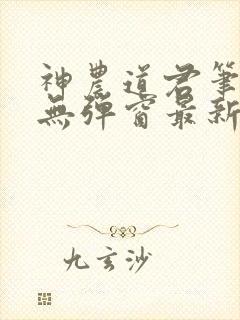 神農道君筆
無彈窗最新
九玄沙